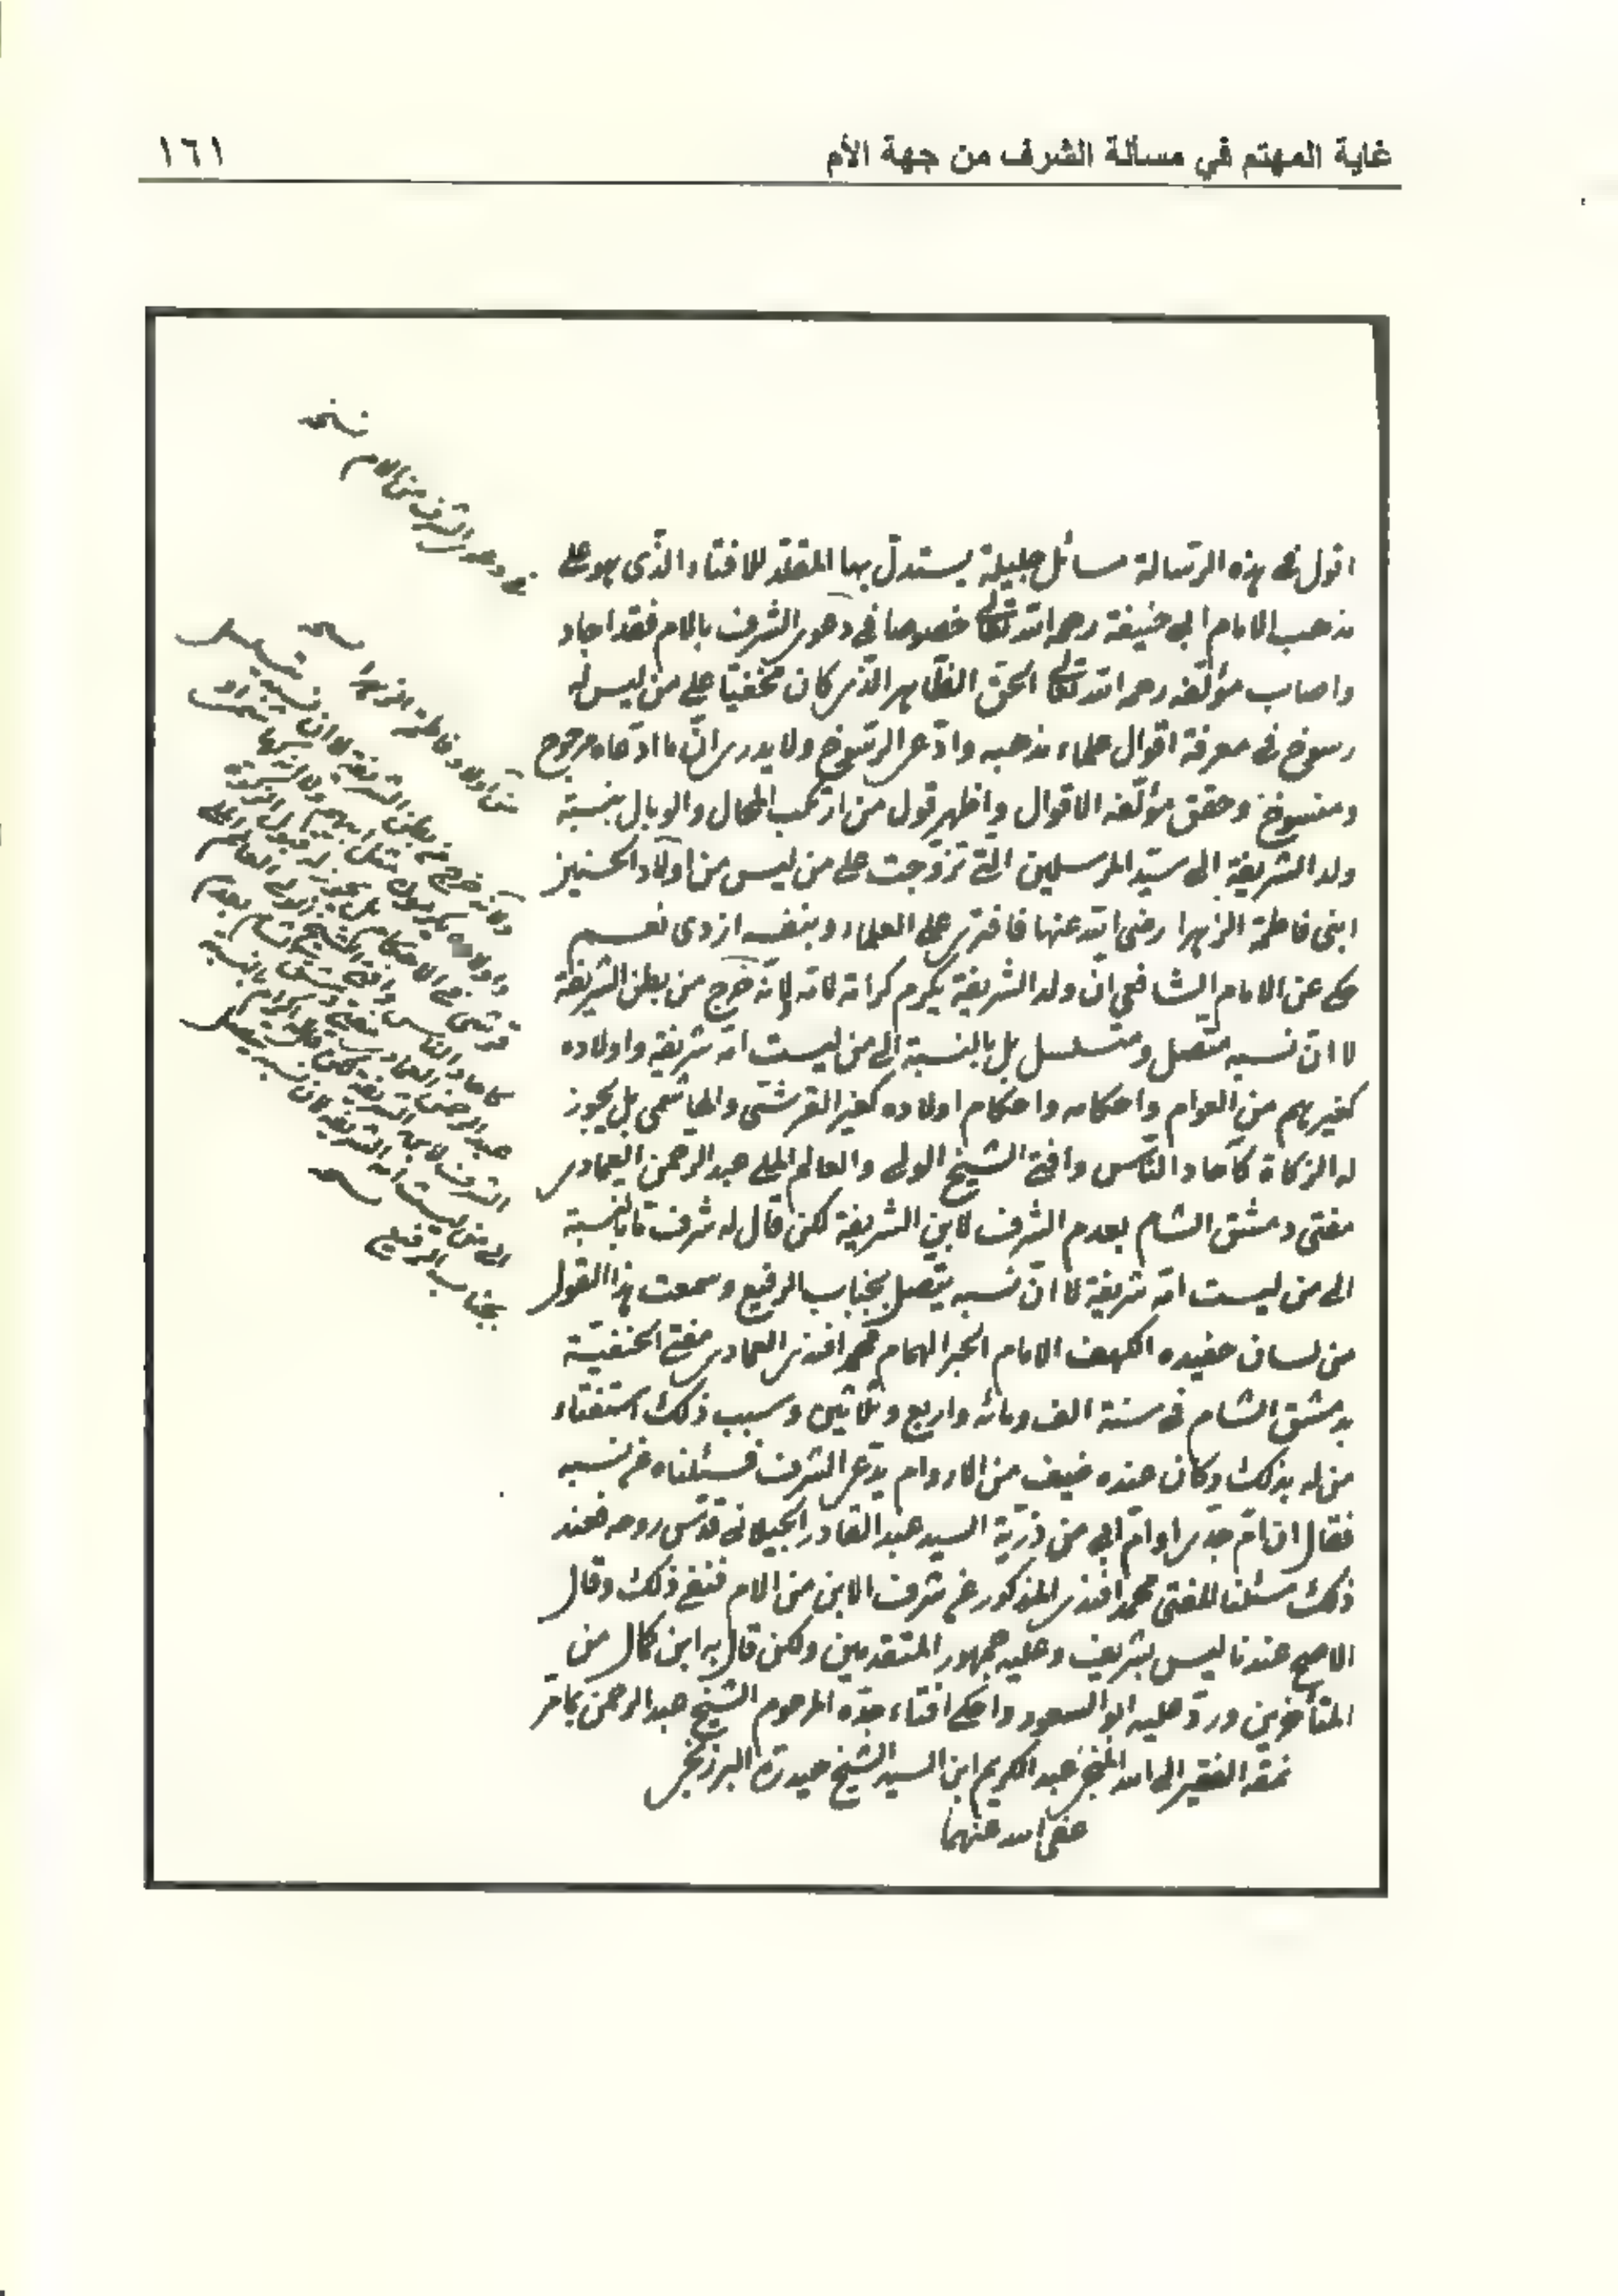 غاية المهتم في مسألة الشرف من جهة الأم
١٦١
اقول فى هذه الرسالة مسائل جليلة يستدل بها المقلد للافتاء الذى هو على
مذهب الامام ابى حنيفة رحمه الله تعالى خصوصا فى دعوى الشرف بالام فقد اجاد
واصاب مؤلفه رحمه الله تعالى الحق الظاهر الذى كان مخفيا على من ليس له
رسوخ فى معرفة اقوال علماء مذهبه وادعى الرسوخ ولا يدرى ان ما ادعاه مرجوح
ومنسوخ وحقق مؤلفه الاقوال واظهر قول من ارتكب المحال والوبال بنسبة
ولد الشريفة الى سيد المرسلين التى تزوجت على من ليس من اولاد الحسنين
ابنى فاطمة الزهرا رضى الله عنها فافترى على العلماء وبنفسه ازدى نعم
حكى عن الامام الشافعي ان ولد الشريفة يكرم كرامة لامه لانه خرج من بطن الشريفة
لا ان نسبه متصل ومتسلسل بل بالنسبة الى من ليست امه شريفة واولاده
كغيرهم من العوام واحكامه واحكام اولاده كغير القرشى والهاشمى بل يجوز
له الزكاة كآحاد الناس وافتى الشيخ الولى والعالم الملى عبد الرحمن العمادى
مفتى دمشق الشام بعدم الشرف لابن الشريفة لكن قال له شرف ما بالنسبة
الى من ليست امه شريفة لا ان نسبه يتصل بجناب الرفيع وسمعت هذا القول
من لسان حفيده الكهف الامام الحبر الهمام محمد افندى العمادى مفتى الحنفية
بدمشق الشام فى سنة الف ومائه واربع وثلاثين وسبب ذلك استفتاء
من له بذلك وكان عنده ضيف من الاروام يدعى الشرف فسئلناه عن نسبه
فقال ان ام جدى او ام ابى من ذرية السيد عبد القادر الجيلانى قدس روحه فعند
ذلك سئلنا المفتى محمد افندى المذكور عن شرف الابن من الام فنفى ذلك وقال
الاصح عندنا ليس بشريف وعليه جمهور المتقدمين ولكن قال به ابن كمال من
المتأخرين ورد عليه ابو السعود واحكى افتاء جده المرحوم الشيخ عبد الرحمن كما مر
نمقه الفقير الى الله عبد الكريم ابن السيد الشيخ حيدرة البرزنجى
عفى الله عنهما
فى دعوى الشرف من الام نسخه
من اولاد فاطمة الزهرا نسخه
الى من ليست امه الشريفة لان نسبه يتصل
بجناب الرفيع نسخه